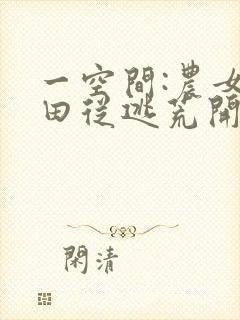 一空間:農女
田從逃荒開
閑清